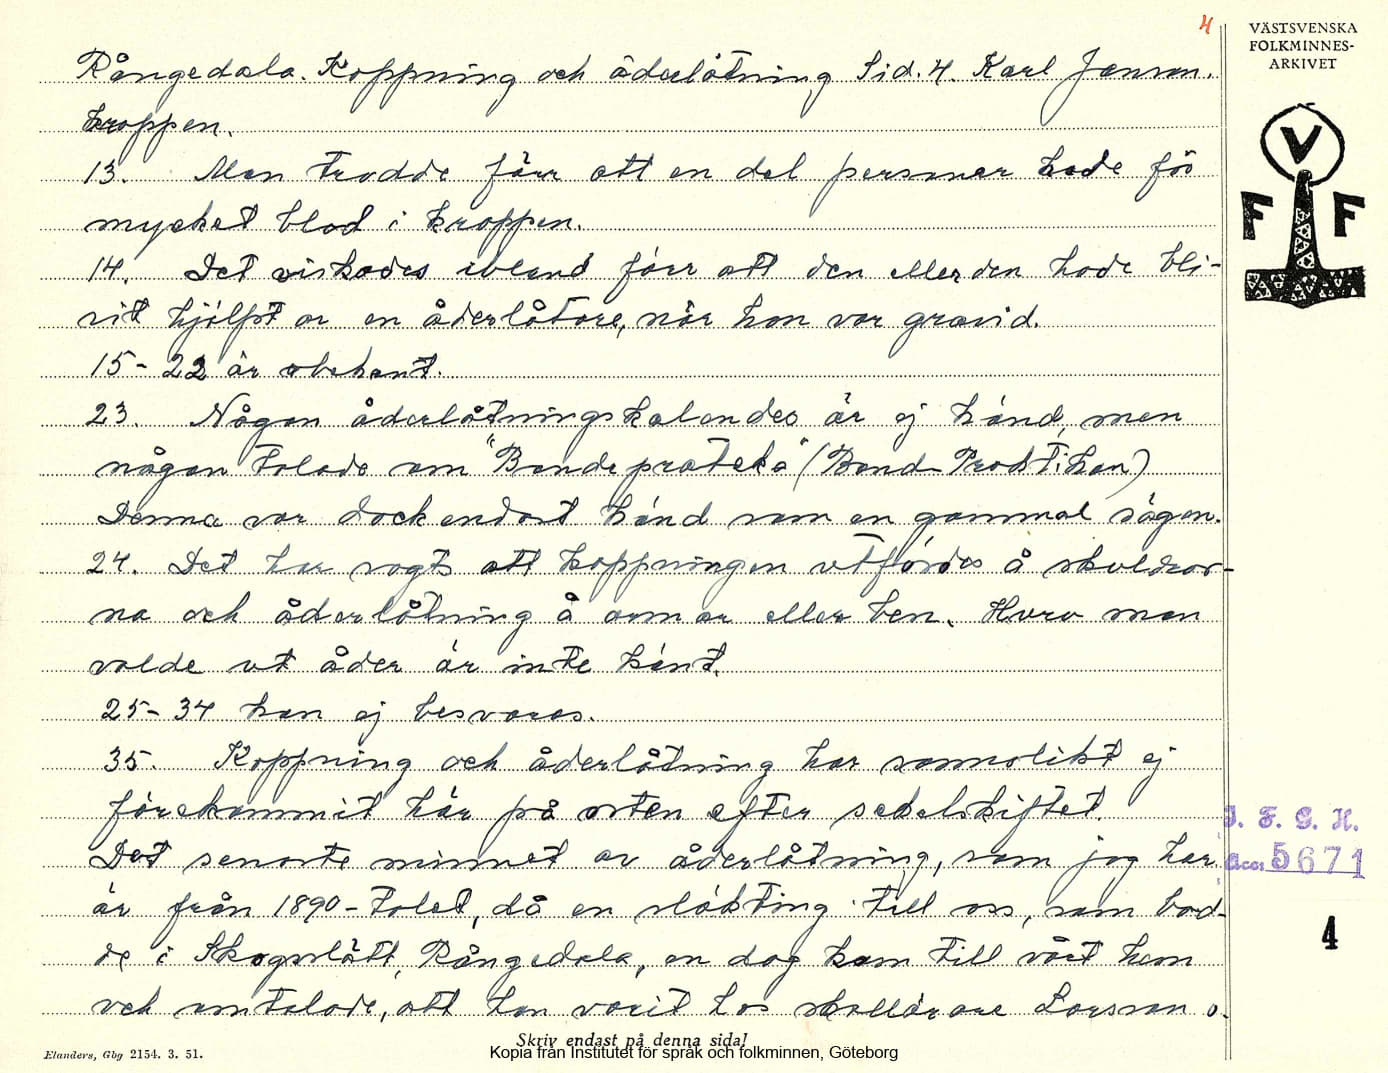 4
VÄSTSVENSKA
FOLKMINNES-
ARKIVET
V
F F
Rångedala. Koppning och åderlåtning Sid. 4. Karl Janson.
kroppen.
13. Man trodde förr att en del personer hade för
mycket blod i kroppen.
14. Det viskades ibland förr att den eller den hade bli-
vit hjälpt av en åderlåtare, när hon var gravid.
15-22 är obekant.
23. Någon åderlåtningskalendes är ej känd, men
någon talade om "Bondeprateka" (Bond-Praktikan)
Denna var dock endast känd som en gammal sägen.
24. Det har sagts att koppningen utfördes å skuldror-
na och åderlåtning å armar eller ben. Huru man
valde ut åder är inte känt.
25-34 kan ej besvaras.
35. Koppning och åderlåtning har sannolikt ej
förekommit här på orten efter sekelskiftet.
Det senaste minnet av åderlåtning, som jag har
är från 1890-talet, då en släkting till oss, som bod-
de i Skogsslätt, Rångedala, en dag kom till vårt hem
och omtalade, att han varit hos skollärare Larsson o.
I. F. G. H.
Acc. 5671
4
Skriv endast på denna sida!
Elanders, Gbg 2154. 3. 51.
Kopia från Institutet för språk och folkminnen, Göteborg